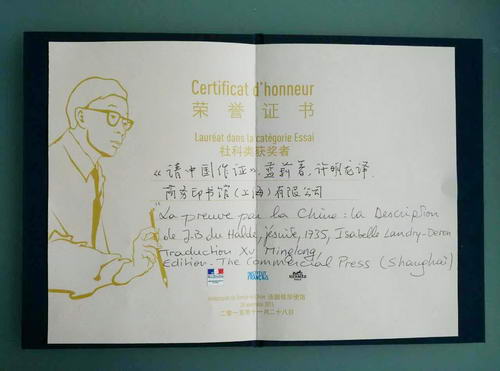 Certificat d'honneur
荣誉证书
Lauréat dans la catégorie Essai
社科类获奖者
《请中国作证》, 蓝莉著, 许明龙译
商务印书馆(上海)有限公司
"La preuve par la Chine : la Description
de J.-B. du Halde, jésuite, 1735, Isabelle Landry-Deron
Traduction Xu Minglong,
Edition. The Commercial Press (Shanghai)
INSTITUT FRANÇAIS
HERMÈS
Ambassade de France en Chine 法国驻华使馆
28 novembre 2015
二零一五年十一月二十八日